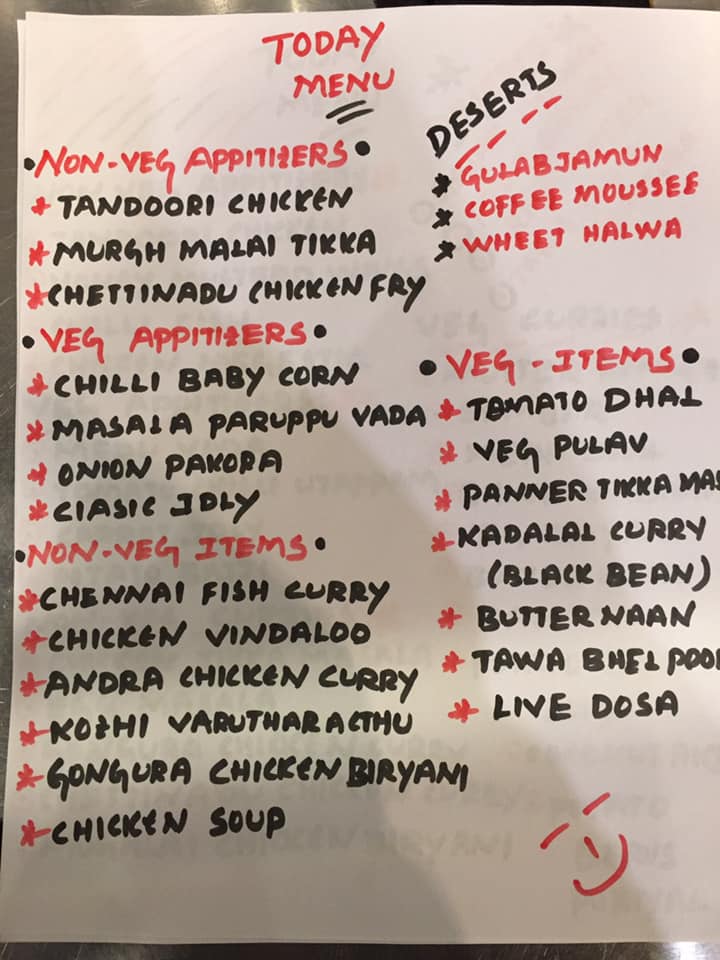 TODAY
MENU
NON-VEG APPITIZERS
TANDOORI CHICKEN
MURGH MALAI TIKKA
CHETTINADU CHICKEN FRY
VEG APPITIZERS
CHILLI BABY CORN
MASALA PARUPPU VADA
ONION PAKORA
CIASIC IDLY
NON-VEG ITEMS
CHENNAI FISH CURRY
CHICKEN VINDALOO
ANDRA CHICKEN CURRY
KOZHI VARUTHARACTHU
GONGURA CHICKEN BIRYANI
CHICKEN SOUP
DESERTS
GULABJAMUN
COFFEE MOUSSEE
WHEET HALWA
VEG-ITEMS
TOMATO DHAL
VEG PULAV
PANNER TIKKA MAS
KADALAL CURRY
(BLACK BEAN)
BUTTER NAAN
TAWA BHEL POO
LIVE DOSA